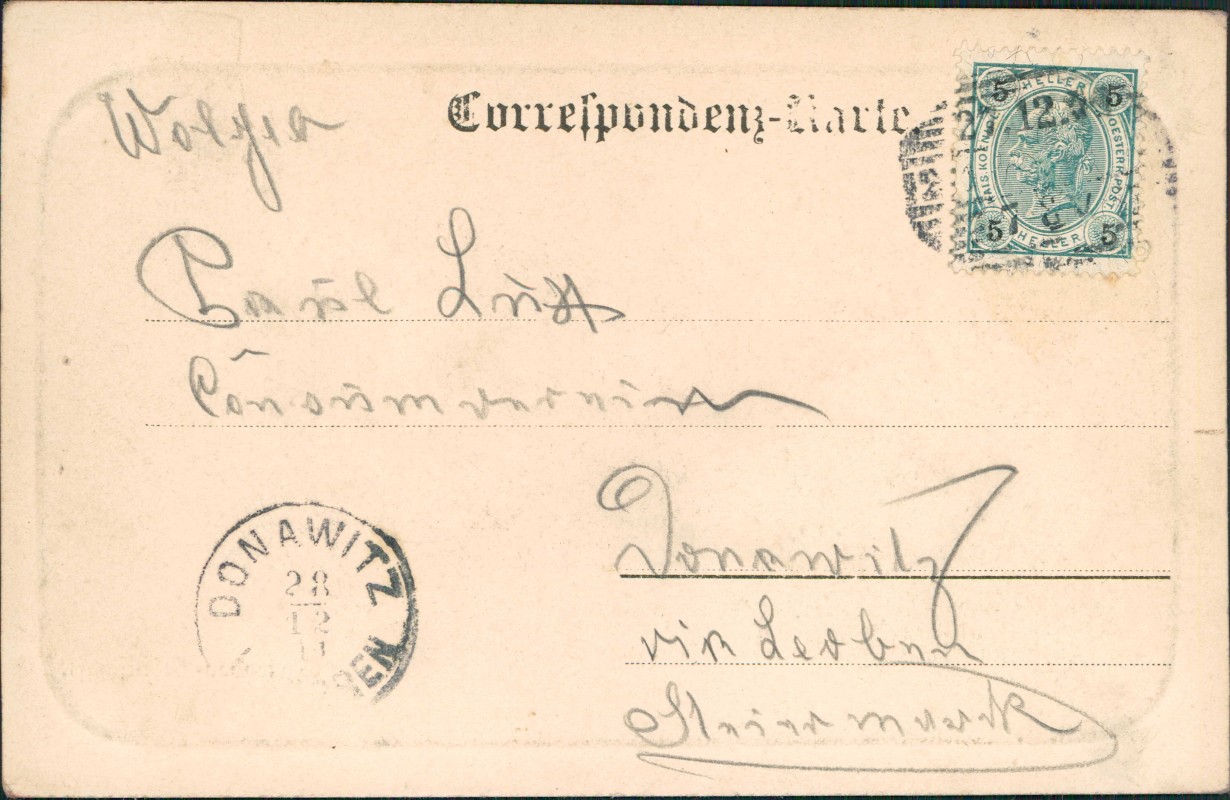 Correspondenz-Karte.
5 HELLER 5
KAIS. KOEN. OESTERR. POST
5 HELLER 5
12
Paul
Consumverein
Donawitz
via Leoben
Steiermark
DONAWITZ
28
12